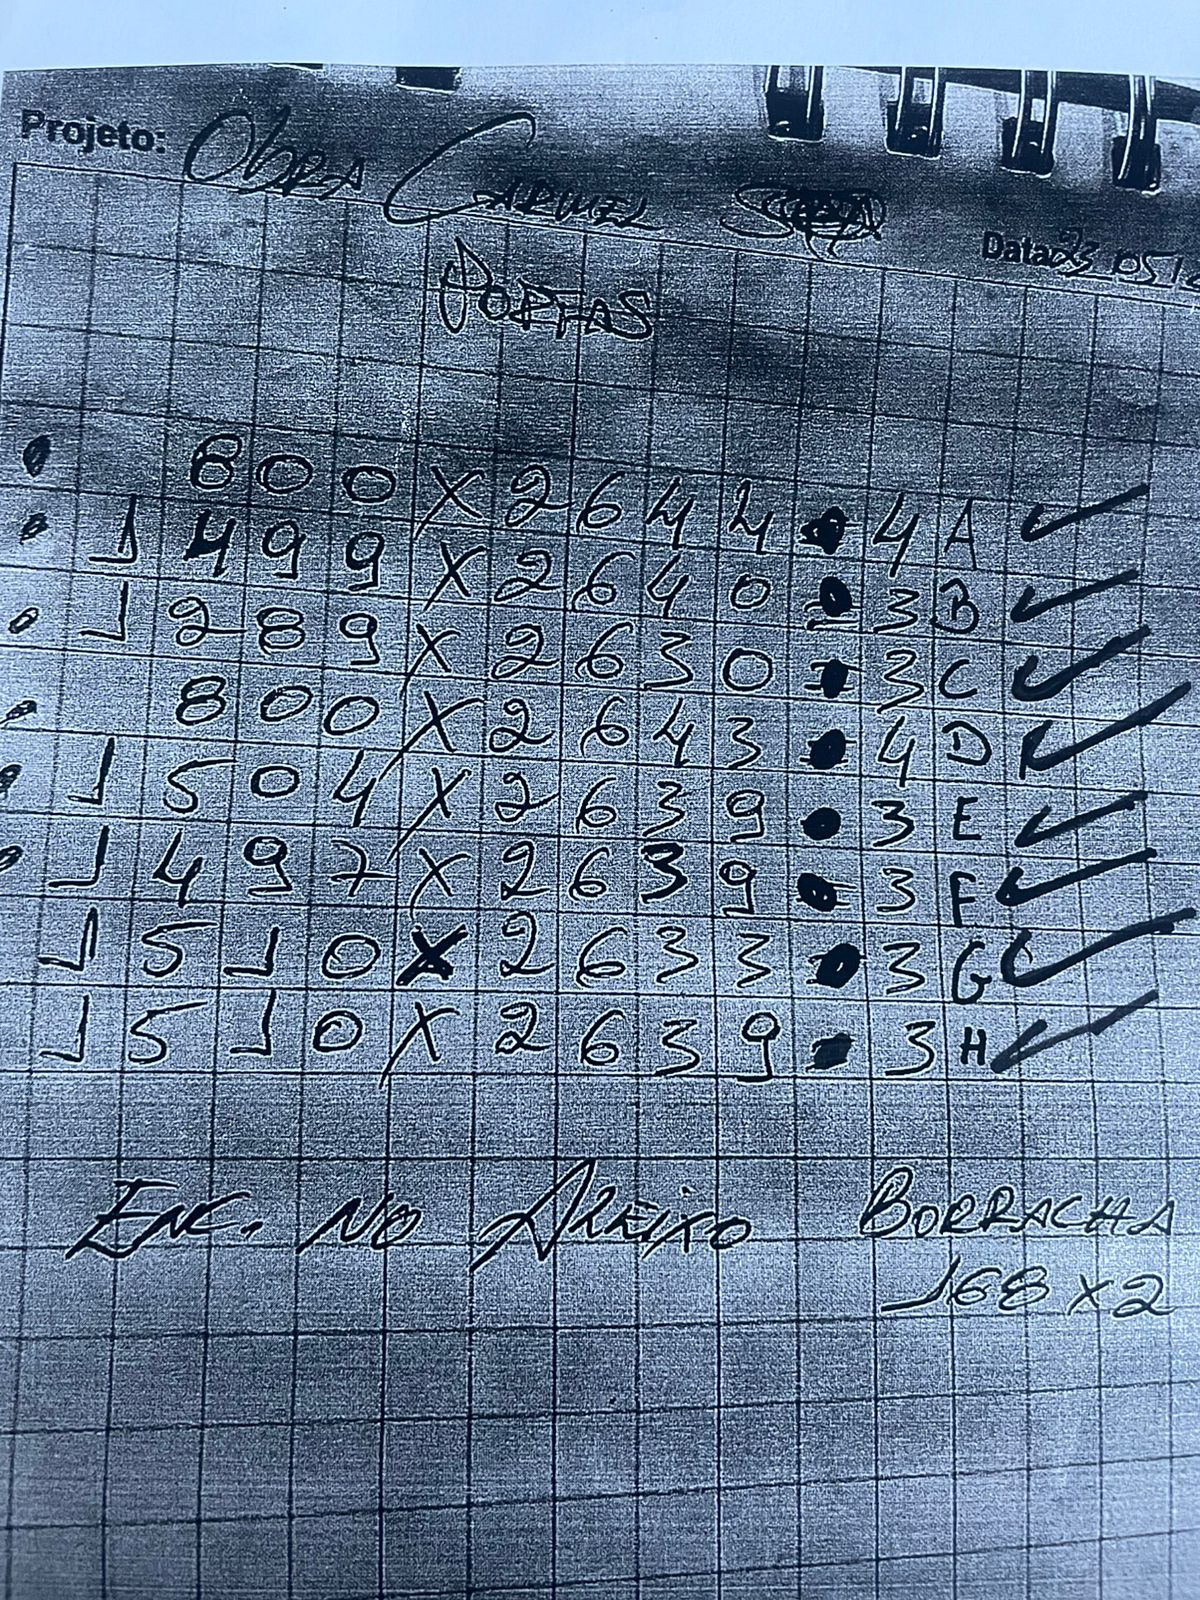 Projeto: OBRA CARMEL
Data: 23/05/2
PORTAS
800 X 2644 = 4 A ✓
1499 X 2640 = 3 B ✓
1289 X 2630 = 3 C ✓
800 X 2643 = 4 D ✓
1504 X 2639 = 3 E ✓
1497 X 2639 = 3 F ✓
1510 X 2633 = 3 G ✓
1510 X 2639 = 3 H ✓
ENC. NO ALEIXO BORRACHA
168 X 2